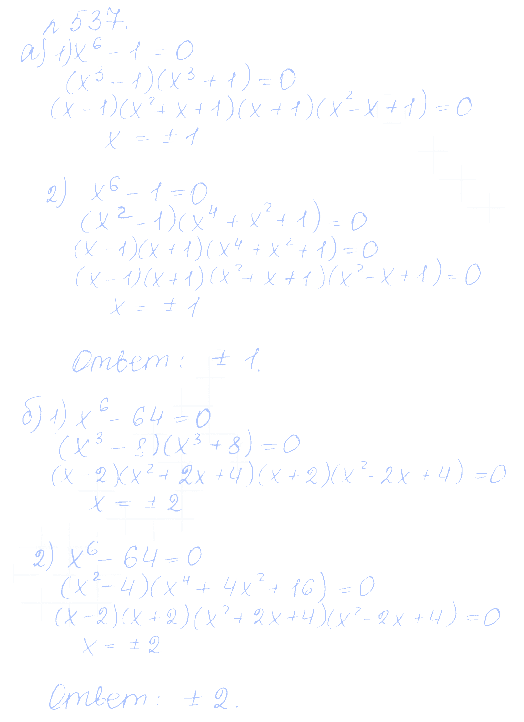 n 537.
а) 1) x⁶ - 1 - 0
(x³ - 1)(x³ + 1) = 0
(x - 1)(x² + x + 1)(x + 1)(x² - x + 1) = 0
x = ± 1
2) x⁶ - 1 = 0
(x² - 1)(x⁴ + x² + 1) = 0
(x - 1)(x + 1)(x⁴ + x² + 1) = 0
(x - 1)(x + 1)(x² + x + 1)(x² - x + 1) = 0
x = ± 1
Ответ: ± 1.
б) 1) x⁶ - 64 = 0
(x³ - 8)(x³ + 8) = 0
(x 2)(x² + 2x + 4)(x + 2)(x² - 2x + 4) = 0
x = ± 2
2) x⁶ - 64 = 0
(x² - 4)(x⁴ + 4x² + 16) = 0
(x - 2)(x + 2)(x² + 2x + 4)(x² - 2x + 4) = 0
x = ± 2
Ответ: ± 2.